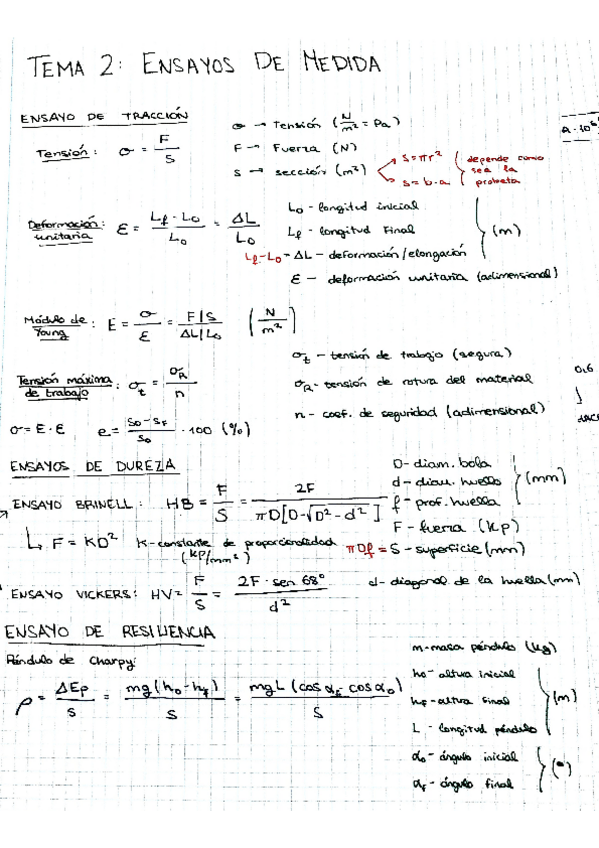 TEMA 2: ENSAYOS DE MEDIDA
ENSAYO DE TRACCIÓN
Tensión: σ = F/S
σ → Tensión (N/m² = Pa)
F → Fuerza (N)
S → sección (m²)
S = πr²
S = b·a
depende como sea la probeta
Deformación unitaria: ε = (Lf - L0)/L0 = ΔL/L0
L0 - longitud inicial
Lf - longitud Final
(m)
Lf-L0 = ΔL - deformación/elongación
ε - deformación unitaria (adimensional)
Módulo de Young: E = σ/ε = (F/S)/(ΔL/L0) (N/m²)
Tensión máxima de trabajo: σt = σR/n
σt - tensión de trabajo (segura)
σR - tensión de rotura del material
n - coef. de seguridad (adimensional)
0,6
σ = E·ε e = (S0-SF)/S0 · 100 (%)
ENSAYOS DE DUREZA
ENSAYO BRINELL: HB = F/S = 2F/(πD[D-√(D²-d²)])
D - diam. bola
d - diam. huella
f - prof. huella
(mm)
F - fuerza (kp)
F = KD² K - constante de proporcionalidad (kp/mm²)
πDf = S - superficie (mm)
ENSAYO VICKERS: HV = F/S = 2F·sen 68°/d²
d - diagonal de la huella (mm)
ENSAYO DE RESILIENCIA
Péndulo de Charpy:
ρ = ΔEp/S = mg(h0-hf)/S = mgL(cos αf cos α0)/S
m - masa péndulo (kg)
h0 - altura inicial
hf - altura final
L - longitud péndulo
(m)
α0 - ángulo inicial
αf - ángulo final
(°)